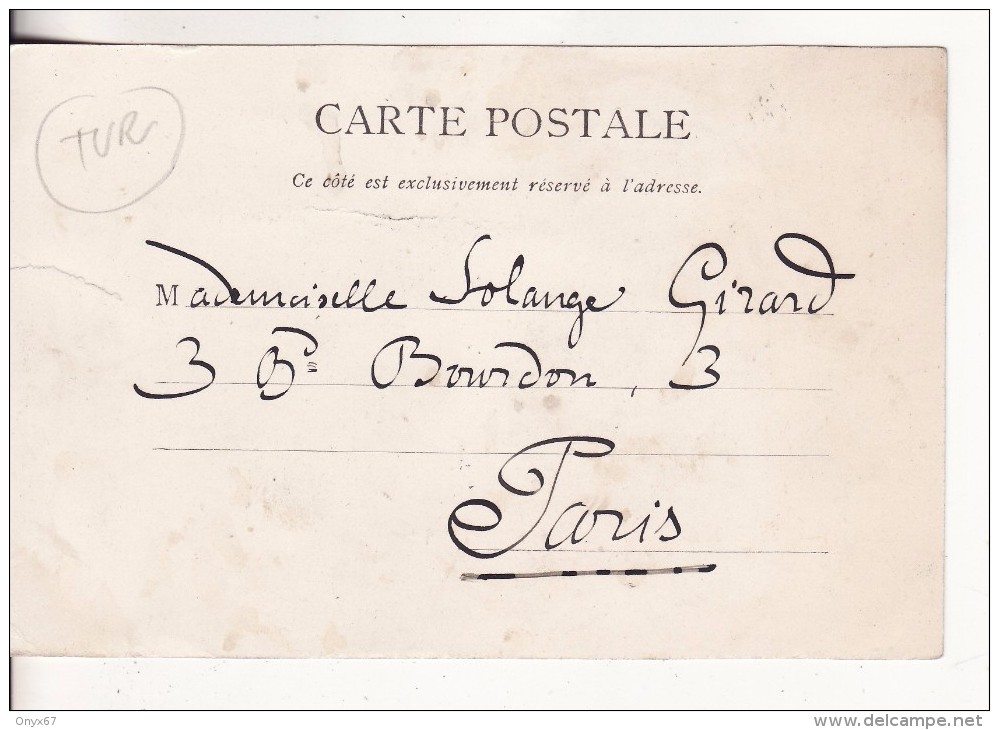 CARTE POSTALE
TUR
Ce côté est exclusivement réservé à l'adresse.
Mademoiselle Solange Girard
3 Bd Bourdon, 3
Paris
Onyx67
www.delcampe.net